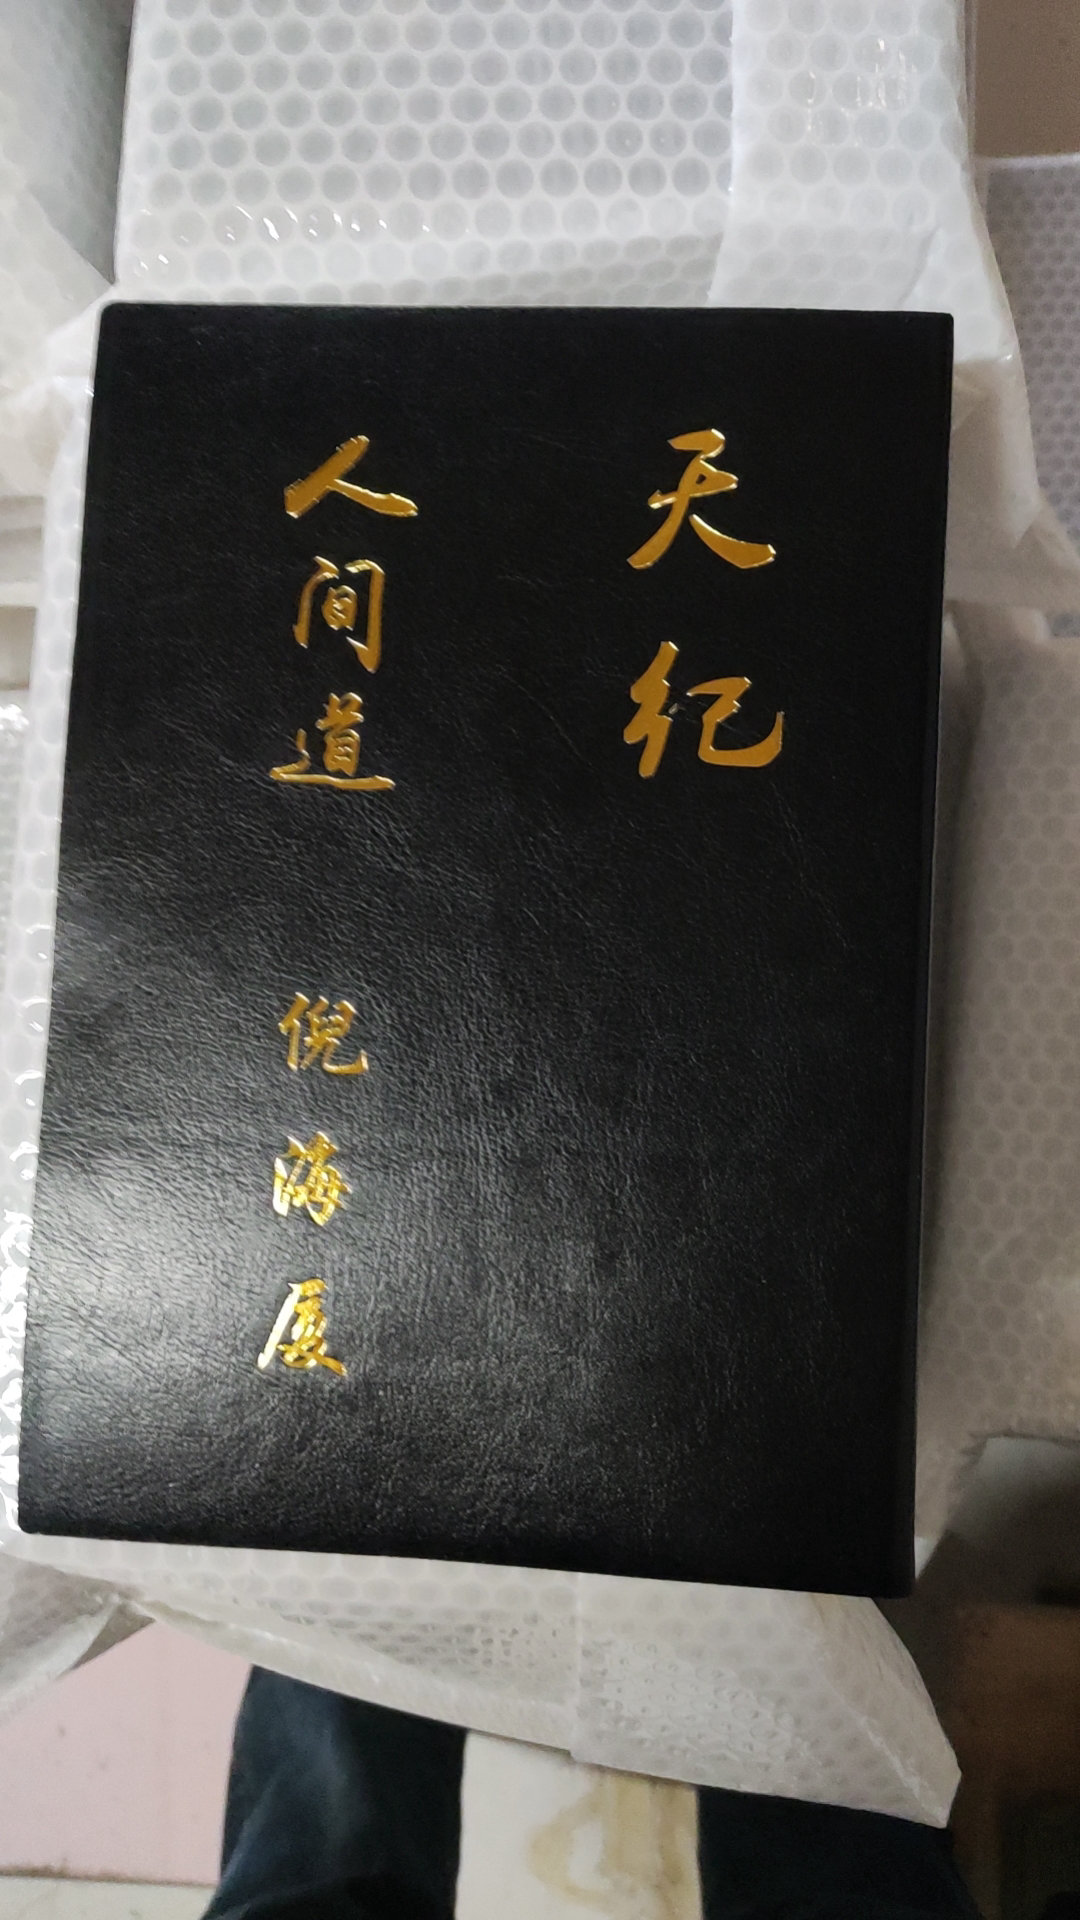 天纪
人间道
倪海厦